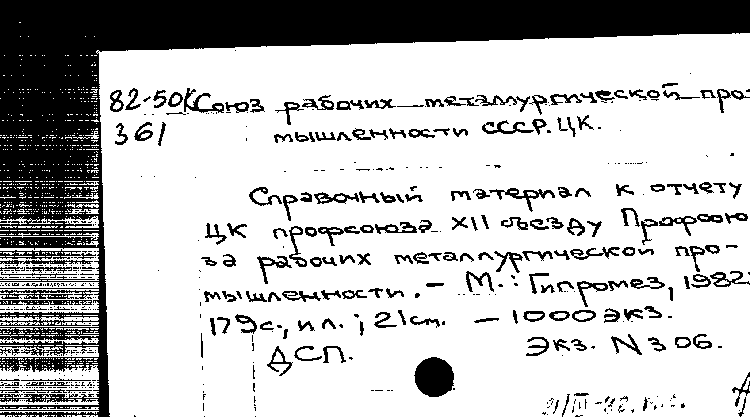 82-50К Союз рабочих металлургической про-
361 мышленности СССР. ЦК.
Справочный материал к отчету
ЦК профсоюза XII съезду Профсою-
за рабочих металлургической про-
мышленности. — М.: Гипромез, 1982.
179 с., ил.; 21 см. — 1000 экз.
ДСП. Экз. N 306.